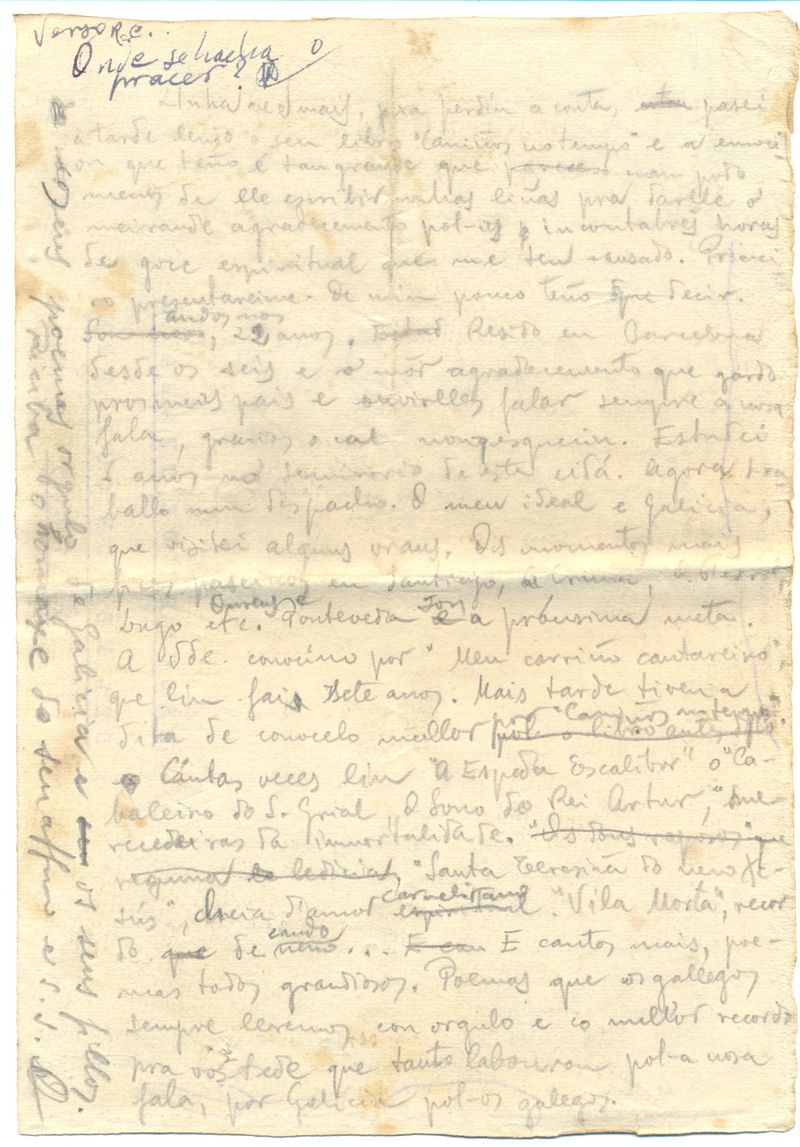 Versos R.C.
Onde se hacha o
pracer?
Unha vez mais, pra perdin a conta, pasei
a tarde lendo o seu libro "Camiños no tempo" e a emoci-
on que teño é tan grande que non podo
menos de lle escribir unhas liñas pra darlle o
meirande agradecemento pol-as incontabres horas
de goce espiritual que me ten causado. Primei
o presentareime. De min pouco teño que decir.
andos nos
Son novo, 22 anos. Resido en Barcelona
desde os seis e o mór agradecemento que gardo
pros meus pais e ouvirlles falar sempre a nosa
fala, gracias o cal non-esquecin. Estudei
5 anos no seminario de esta cidá. Agora tra
ballo nun despacho. O meu ideal e Galicia,
que visitei alguns vraus. Os momentos mais
en Santiago, A Cruña, O Ferrol,
Ourense
Lugo etc. Pontevedra é a próusima meta.
A Vde. conocino por "Meu carriño cantareiro",
que lin fai sete anos. Mais tarde tiven a
por "Camiños no tempo".
dita de conocelo mellor pol-o libro antes dito.
Cántas veces lin "A Espada Escalibor" o "Ca-
baleiro do S. Grial, O Sono do Rei Artur," "Me-
recedeiras da inmortalidade. "Os dous reposos" que
rezuma de ledicia, "Santa Teresiña do neno Xe-
sús", cheia d'amor espiritual. "Vila Morta", recor
carmelitano
do que de cando neno... E con E cantos mais, poe-
mas todos grandiosos. Poemas que os gallegos
sempre leremos con orgulo e co mellor recordo
pra vostede que tanto labourou pol-a nosa
fala, por Galicia pol-os galegos.
os seus poemas orgulo de Galicia e os seus fillos.
Reciba o homaxe do seu affmo e s.s.